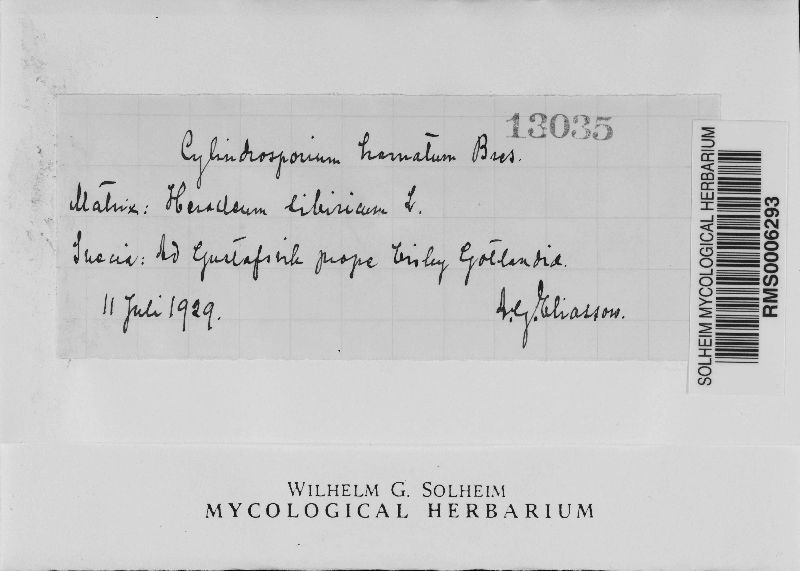 13035
Cylindrosporium hamatum Bres.
Matrix: Heracleum sibiricum L.
Suecia: Ad Gustafsvik prope Visby Gotlandiæ.
11 Juli 1929. A.G. Eliasson.
SOLHEIM MYCOLOGICAL HERBARIUM
RMS0006293
WILHELM G. SOLHEIM
MYCOLOGICAL HERBARIUM